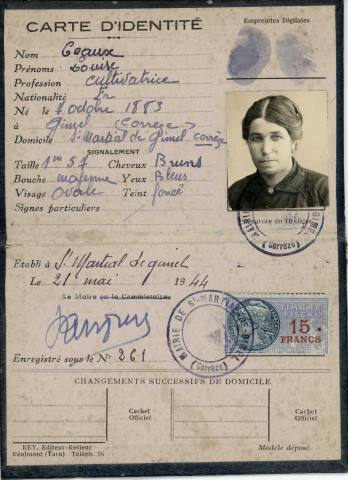 CARTE D'IDENTITÉ
Empreintes Digitales
Nom Cazaux
Prénoms Louise
Profession Cultivatrice
Nationalité Fr
Né le octobre 1883
à Gimel (Corrèze)
Domicile St-Martial de Gimel Corrèze
SIGNALEMENT
Taille 1m 57 Cheveux Bruns
Bouche moyenne Yeux Bleus
Visage Ovale Teint foncé
Signes particuliers
Signature du Titulaire
GIMEL
MAIRIE
(Corrèze)
Etabli à St Martial de Gimel
Le 21 mai 1944
Le Maire ou le Commissaire
Enregistré sous le N° 261
MAIRIE DE ST-MARTIAL-DE-GIMEL
(Corrèze)
TIMBRE FISCAL
15
FRANCS
CHANGEMENTS SUCCESSIFS DE DOMICILE
Cachet Officiel
Cachet Officiel
REY, Editeur-Relieur
Réalmont (Tarn) Téléph. 56
Modèle déposé.